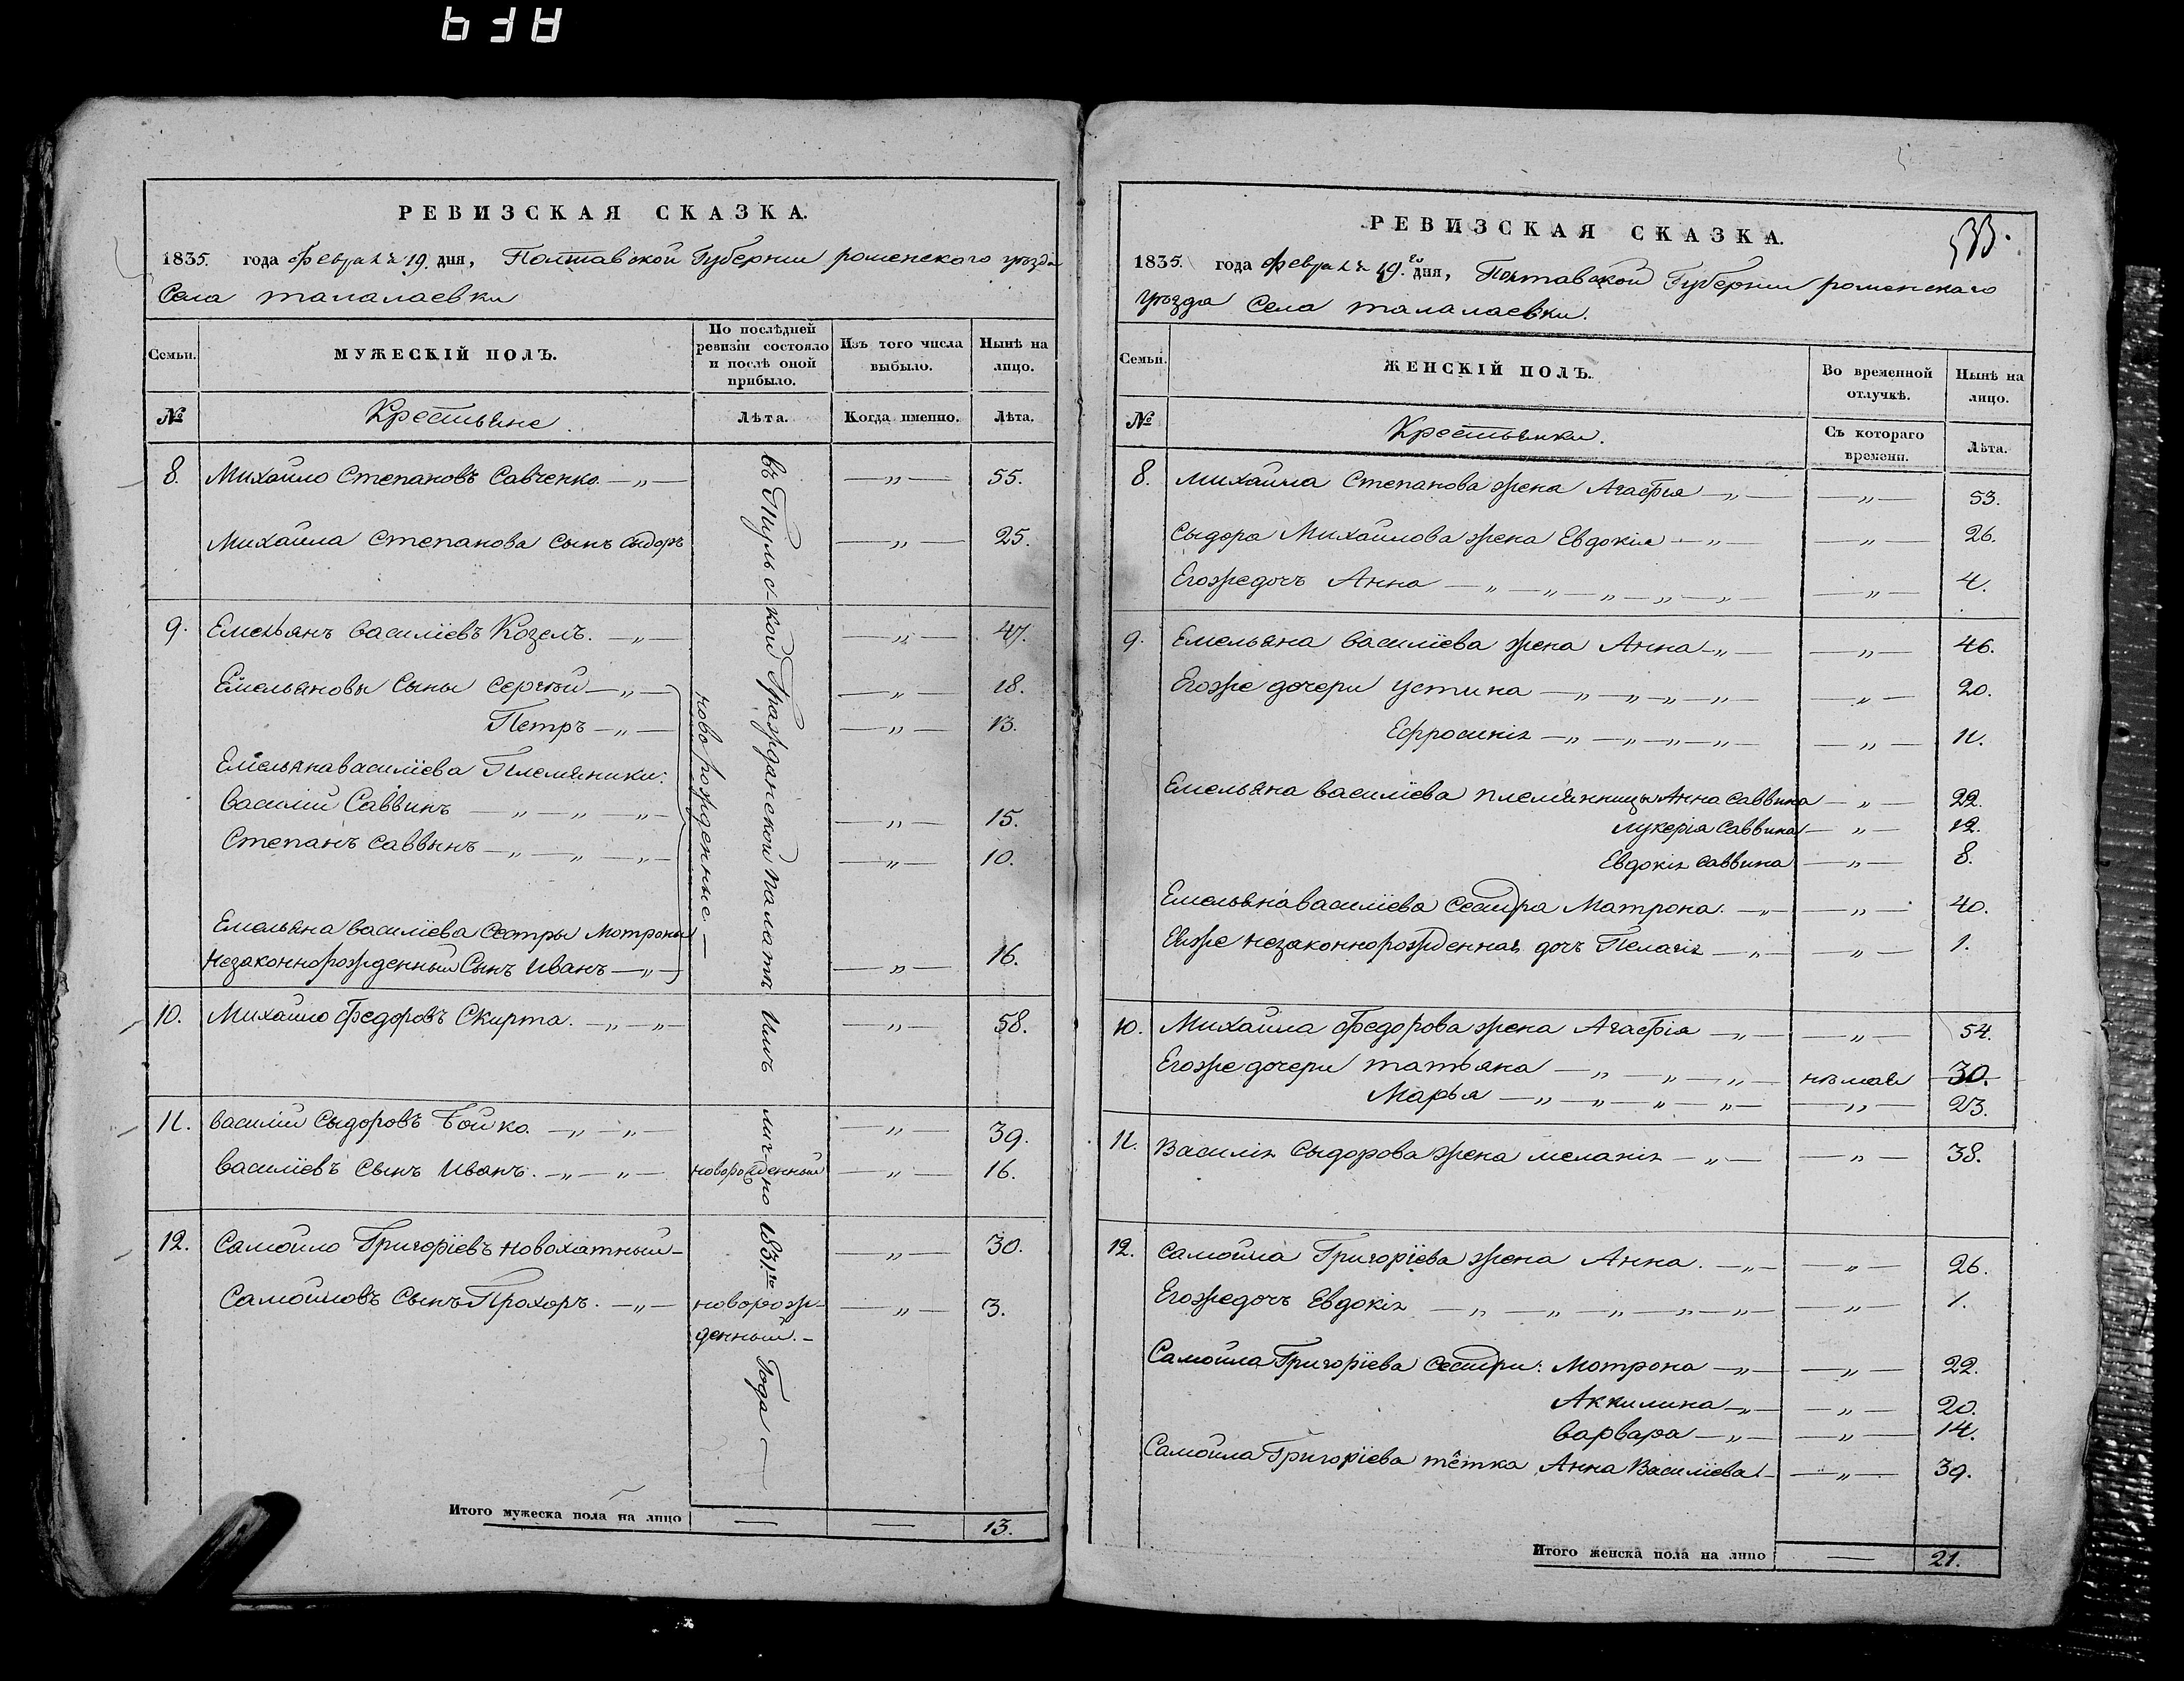 РЕВИЗСКАЯ СКАЗКА.
1835. года февраля 19. дня, Полтавской Губернии роменского уезда
Села талалаевки
Семьи. МУЖЕСКІЙ ПОЛЪ. По послѣдней ревизіи состояло и послѣ оной прибыло. Изъ того числа выбыло. Нынѣ на лицо.
№ Крестьяне. Лѣта. Когда именно. Лѣта.
8. Михайло Степановъ Савченко. — „ — — „ — 55.
Михайла Степанова сынъ сыдоръ — „ — 25.
9. Емельянъ василіевъ Козелъ. — „ — — „ — 47.
Емельяновы сыны сергѣй — „ — — „ — 18.
Петръ — „ — — „ — 13.
Емельяна василіева Племяники:
василій Саввинъ — „ — „ — „ — — „ — 15.
Степанъ саввинъ — „ — „ — „ — — „ — 10.
Емельяна василіева Сестры мотроны
незаконнорожденный Сынъ иванъ — „ — — „ — 16.
новорожденные —
10. Михайло федоровъ Скирта. — „ — „ — — „ — 58.
11. василій сыдоровъ Бойко. — „ — „ — — „ — 39.
василіевъ сынъ иванъ. — „ — „ — новорожденный — „ — 16.
12. Самойло Григоріевъ новохатный — — „ — 30.
Самойловъ Сынъ Прохоръ. — „ — новорож- — „ — 3.
денный. —
въ
Гражданской палате
или
лично 1831.го
Года —
Итого мужеска пола на лицо — — 13.
РЕВИЗСКАЯ СКАЗКА.
1835. года февраля 19.го дня, Полтавской Губернии роменскаго
уезда Села талалаевки.
Семьи. ЖЕНСКІЙ ПОЛЪ. Во временной отлучкѣ. Нынѣ на лицо.
№ Крестьянки. Съ котораго времени. Лѣта.
8. михайла Степанова жена Агафия — „ — — „ — 53.
Сыдора Михайлова жена Евдокия — „ — — „ — 26.
Егоже дочъ Анна — „ — „ — „ — „ — „ — — „ — 4.
9. Емельяна василіева жена Анна — „ — — „ — 46.
Егоже дочери устина — „ — „ — „ — „ — — „ — 20.
Ефросинія — „ — „ — „ — „ — — „ — 11.
Емельяна василіева племянницы Анна саввина — „ — 22.
лукерія Саввина — „ — 12.
Евдокія саввина — „ — 8.
Емельяна василіева Сестра Матрона. — „ — — „ — 40.
Ееже незаконнорожденная дочъ Пелагія — „ — — „ — 1.
10. Михайла федорова жена Агафія — „ — — „ — 54.
Егоже дочери татьяна — „ — „ — „ — немая 30.
Марья — „ — „ — „ — „ — — „ — 23.
11. Василія Сыдорова жена меланія — „ — — „ — 38.
12. самойла Григоріева жена Анна. — „ — — „ — 26.
Егоже дочъ Евдокія — „ — „ — „ — „ — „ — — „ — 1.
Самойла Григоріева сестри: мотрона — „ — — „ — 22.
Аккилина — „ — — „ — 20.
варвара — „ — — „ — 14.
Самойла Григоріева тётка Анна Василіева. — — „ — 39.
Итого женска пола на лицо — 21.